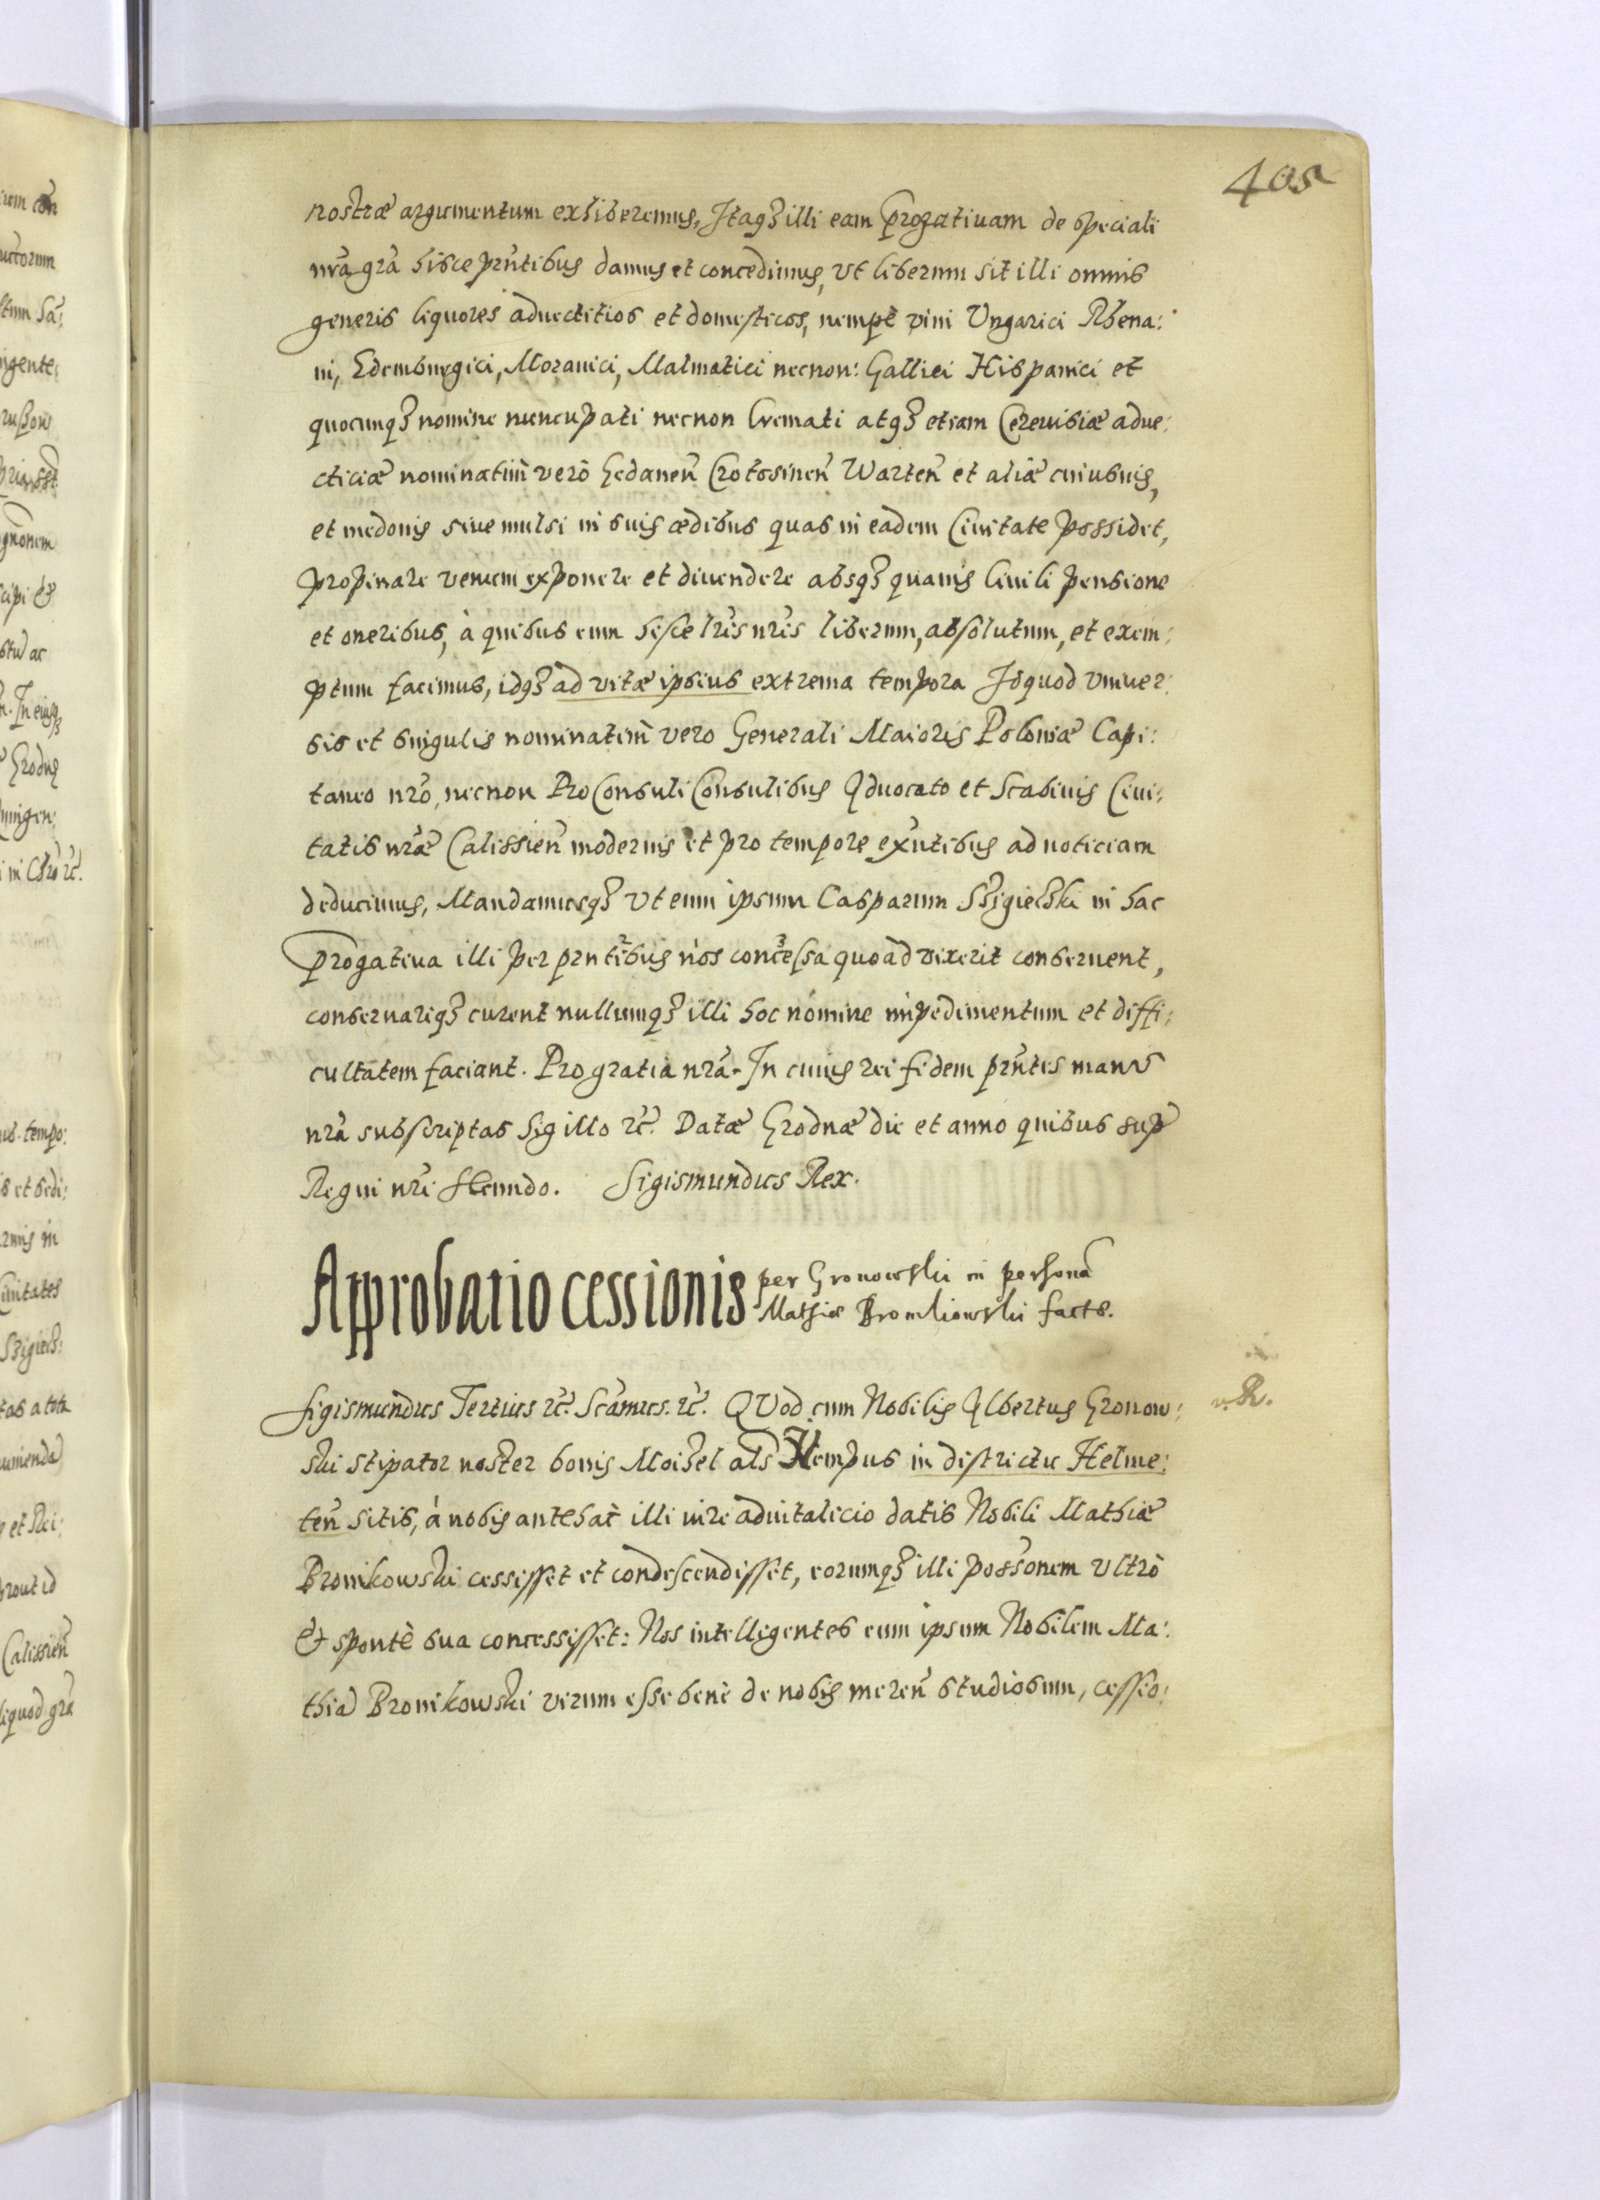 405
nostræ argumentum exhiberemus, Itaq3 illi eam progatiuam de speciali
nrã grã hisce prñtibus damus et concedimus, vt liberum sit illi omnis
generis liquores aduectitios et domesticos, nempè vini Vngarici Rhena:
ni, Edemburgici, Morauici, Malmatici necnon: Gallici Hispanici et
quocunq3 nomine nuncupati necnon Cremati atq3 etiam Cereuisiæ adue:
cticiæ nominatim verò Gedanen Crotosinen Warten et aliæ cuiusuis,
et medonis siue mulsi in suis ædibus quas in eadem Ciuitate possidet,
propinare venum exponere et diuendere absq3 quauis Ciuili pensione
et oneribus, à quibus eum hisce lris nris liberum, absolutum, et exem:
ptum facimus, idq3 ad vitæ ipsius extrema tempora Id quod vniuer:
sis et singulis nominatim vero Generali Maioris Poloniæ Capi:
taneo nro, necnon ProConsuli Consulibus Aduocato et Scabinis Ciui:
tatis nræ Calissien modernis et pro tempore exñtibus ad noticiam
deducimus, Mandamusq3 vt eum ipsum Casparum Strigielski in hac
progatiua illi per prñtibus nos concessa quoad vixerit conseruent,
conseruariq3 curent nullumq3 illi hoc nomine impedimentum et diffi:
cultatem faciant. Pro gratia nrã. In cuius rei fidem prñtes manu
nrã subscriptas Sigillo rc. Datæ Grodnæ die et anno quibus sup
Regni nri Secundo. Sigismundus Rex.
Approbatio cessionis per Gronowski in personã
Mathiæ Bronikowski facte.
Sigismundus Tertius rc. Scamus. rc. QVod cum Nobilis Albertus Gronow:
ski stipator noster bonis Moizel als Kempus in districtu Helme:
ten sitis, à nobis antehac illi iure aduitalicio datis Nobili Mathiæ
Bronikowski cessisset et condescendisset, eorumq3 illi possonem vltrò
& spontè sua concessisset: Nos intelligentes eum ipsum Nobilem Ma:
thiã Bronikowski virum esse benè de nobis meren studiosum, cessio: